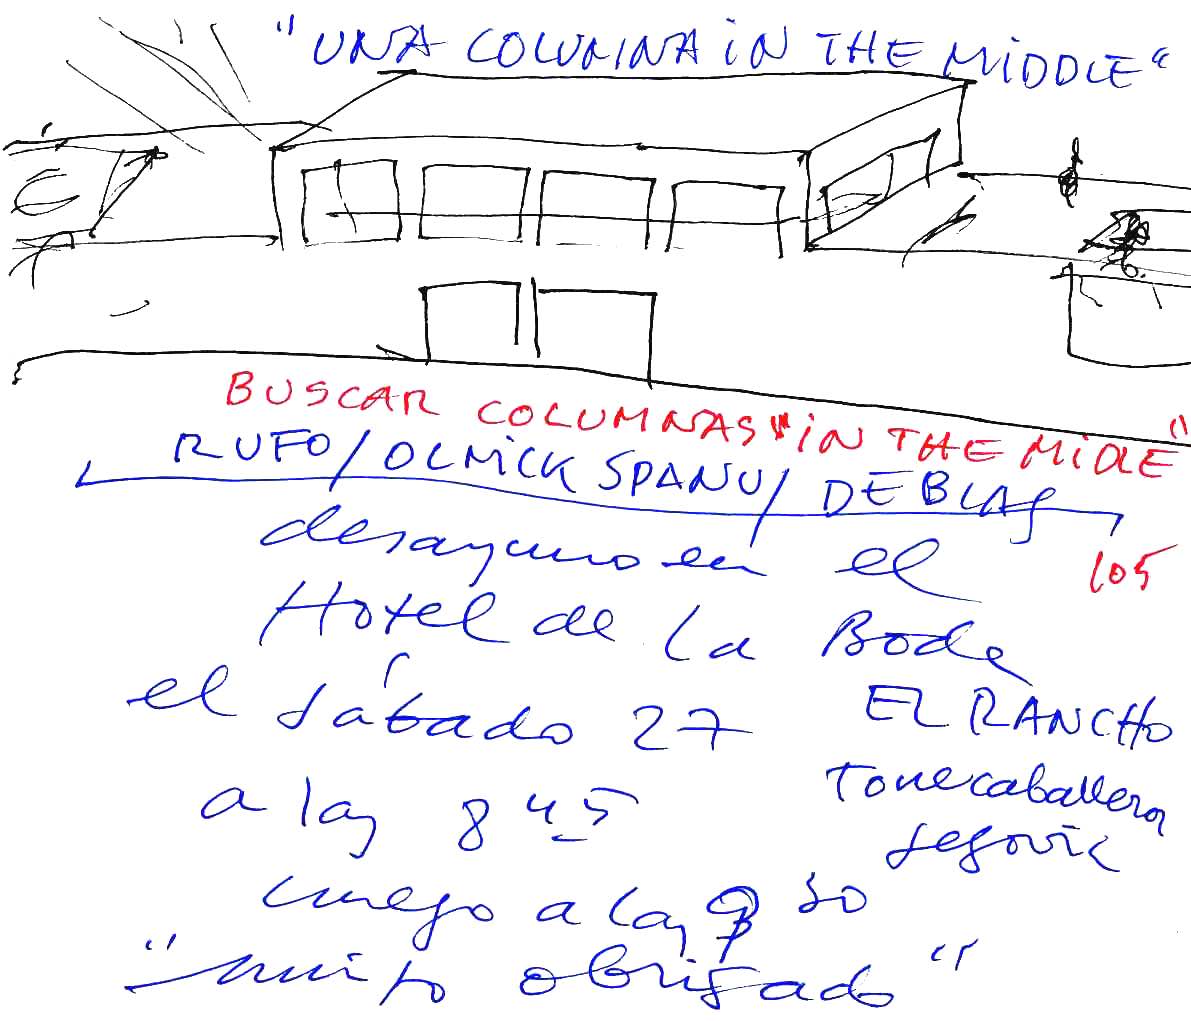 "UNA COLUMNA iN THE MiDDLE"
BUSCAR COLUMNAS "iN THE MiDLE"
RUFO/OLNiCK SPANU/ DE BLAS
105
desayuno en el
Hotel de La Boda
el sábado 27
EL RANCHO
a las 8 45
Torrecaballeros
Segovia
luego a las 9 30
"muito obrigado"